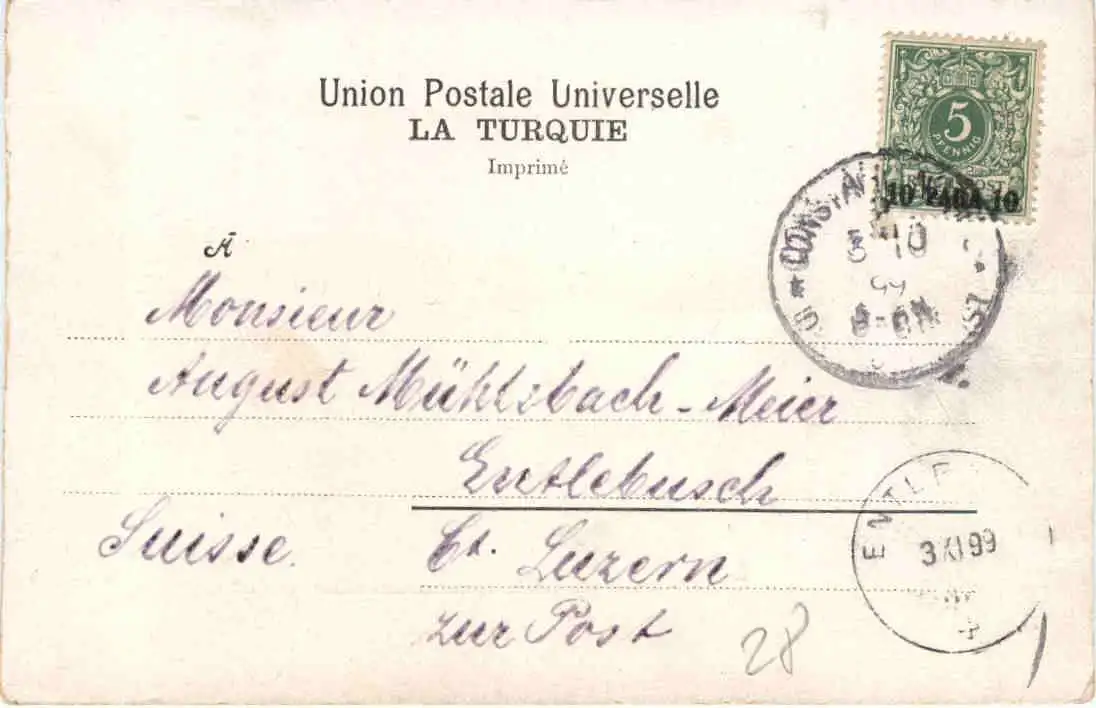 Union Postale Universelle
LA TURQUIE
Imprimé
5
PFENNIG
10 PARA 10
3 10
99
À
Monsieur
August Mühlsbach-Meier
Entlebusch
Suisse. Ct. Luzern
zur Post
ENTLE
3 XI 99
28